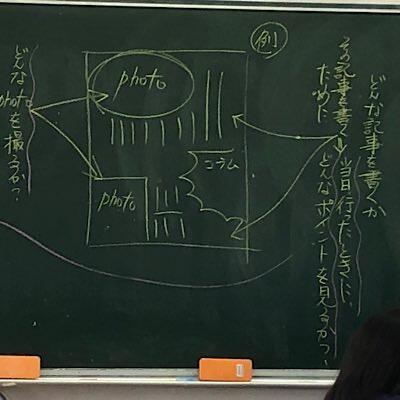 どんな記事を書くか
その記事を書く
ために
当日行ったときに、
どんなポイントを見るか?
例
photo
コラム
photo
どんな
photoを撮るか?